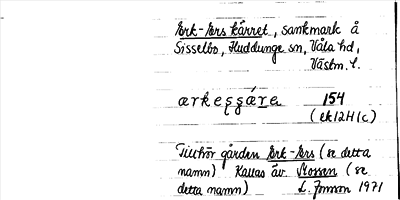 Erk-Ers kärret, sankmark å
Sisselbo, Huddunge sn, Våla hd,
Västm. l.
154
(ek 12H 1c)
Tillhör gården Erk-Ers (se detta
namn) Kallas äv. Mossen (se
detta namn) L. Jonson 1971